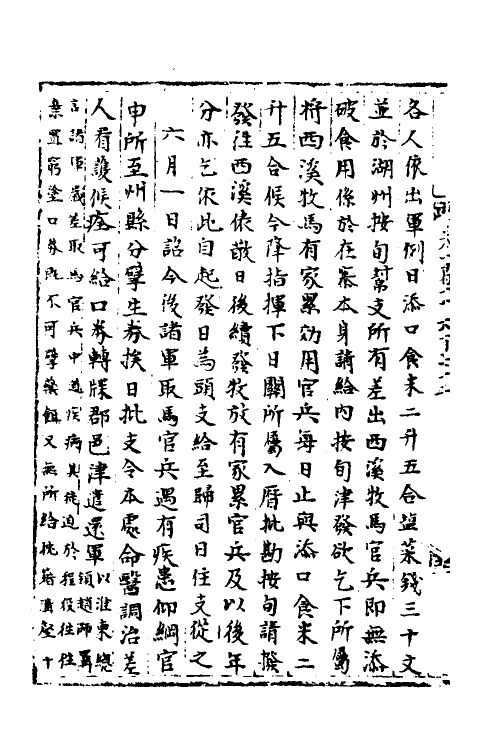 各人依出軍例日添口食米二升五合鹽菜錢三十文
並於湖州按旬幫支所有差出西溪牧馬官兵即無添
破食用係於在寨本身請給內按旬津發欲乞下所屬
將西溪牧馬有家累効用官兵每日止與添口食米二
升五合候今降指揮下日關所屬入曆批勘按旬請撥
發往西溪依敬日後續發牧放有家累官兵及以後年
分亦乞依此自起發日為頭支給至歸司日住支從之
六月一日詔今後諸軍取馬官兵遇有疾患仰綱官
申所至州縣分擘生券挨日批支令本處命醫調治差
人看護候痊可給口券轉牒郡邑津遣還軍以淮東總領趙師𢍰
言諸軍歲差取馬官兵中道疾病其徒迫於程役往往
棄置窮塗口券既不可擘藥餌又無所給扶藉溝壑十